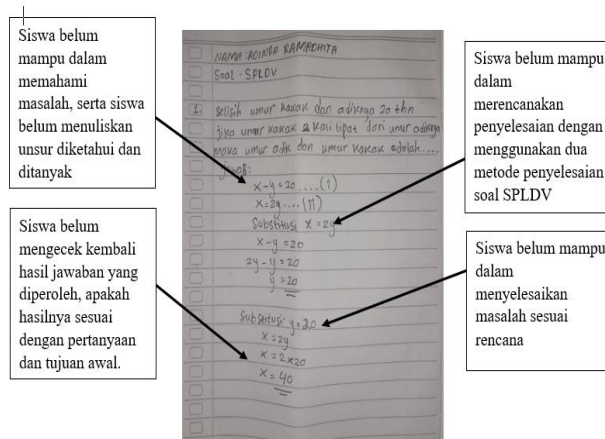 Siswa belum
mampu dalam
memahami
masalah, serta siswa
belum menuliskan
unsur diketahui dan
ditanyak
Siswa belum
mengecek kembali
hasil jawaban yang
diperoleh, apakah
hasilnya sesuai
dengan pertanyaan
dan tujuan awal.
NAMA : ADINDA RAMADHITA
Soal - SPLDV
1. Selisih umur kakak dan adiknya 20 thn
jika umur kakak 2 kali lipat dari umur adiknya
maka umur adik dan umur kakak adalah....
Jawab:
x-y=20 ....(1)
x=2y ....(11)
Substitusi x = 2y
x-y=20
2y-y=20
y=20
Substitusi y=20
x=2y
x=2x20
x=40
Siswa belum mampu
dalam
merencanakan
penyelesaian dengan
menggunakan dua
metode penyelesaian
soal SPLDV
Siswa belum mampu
dalam
menyelesaikan
masalah sesuai
rencana